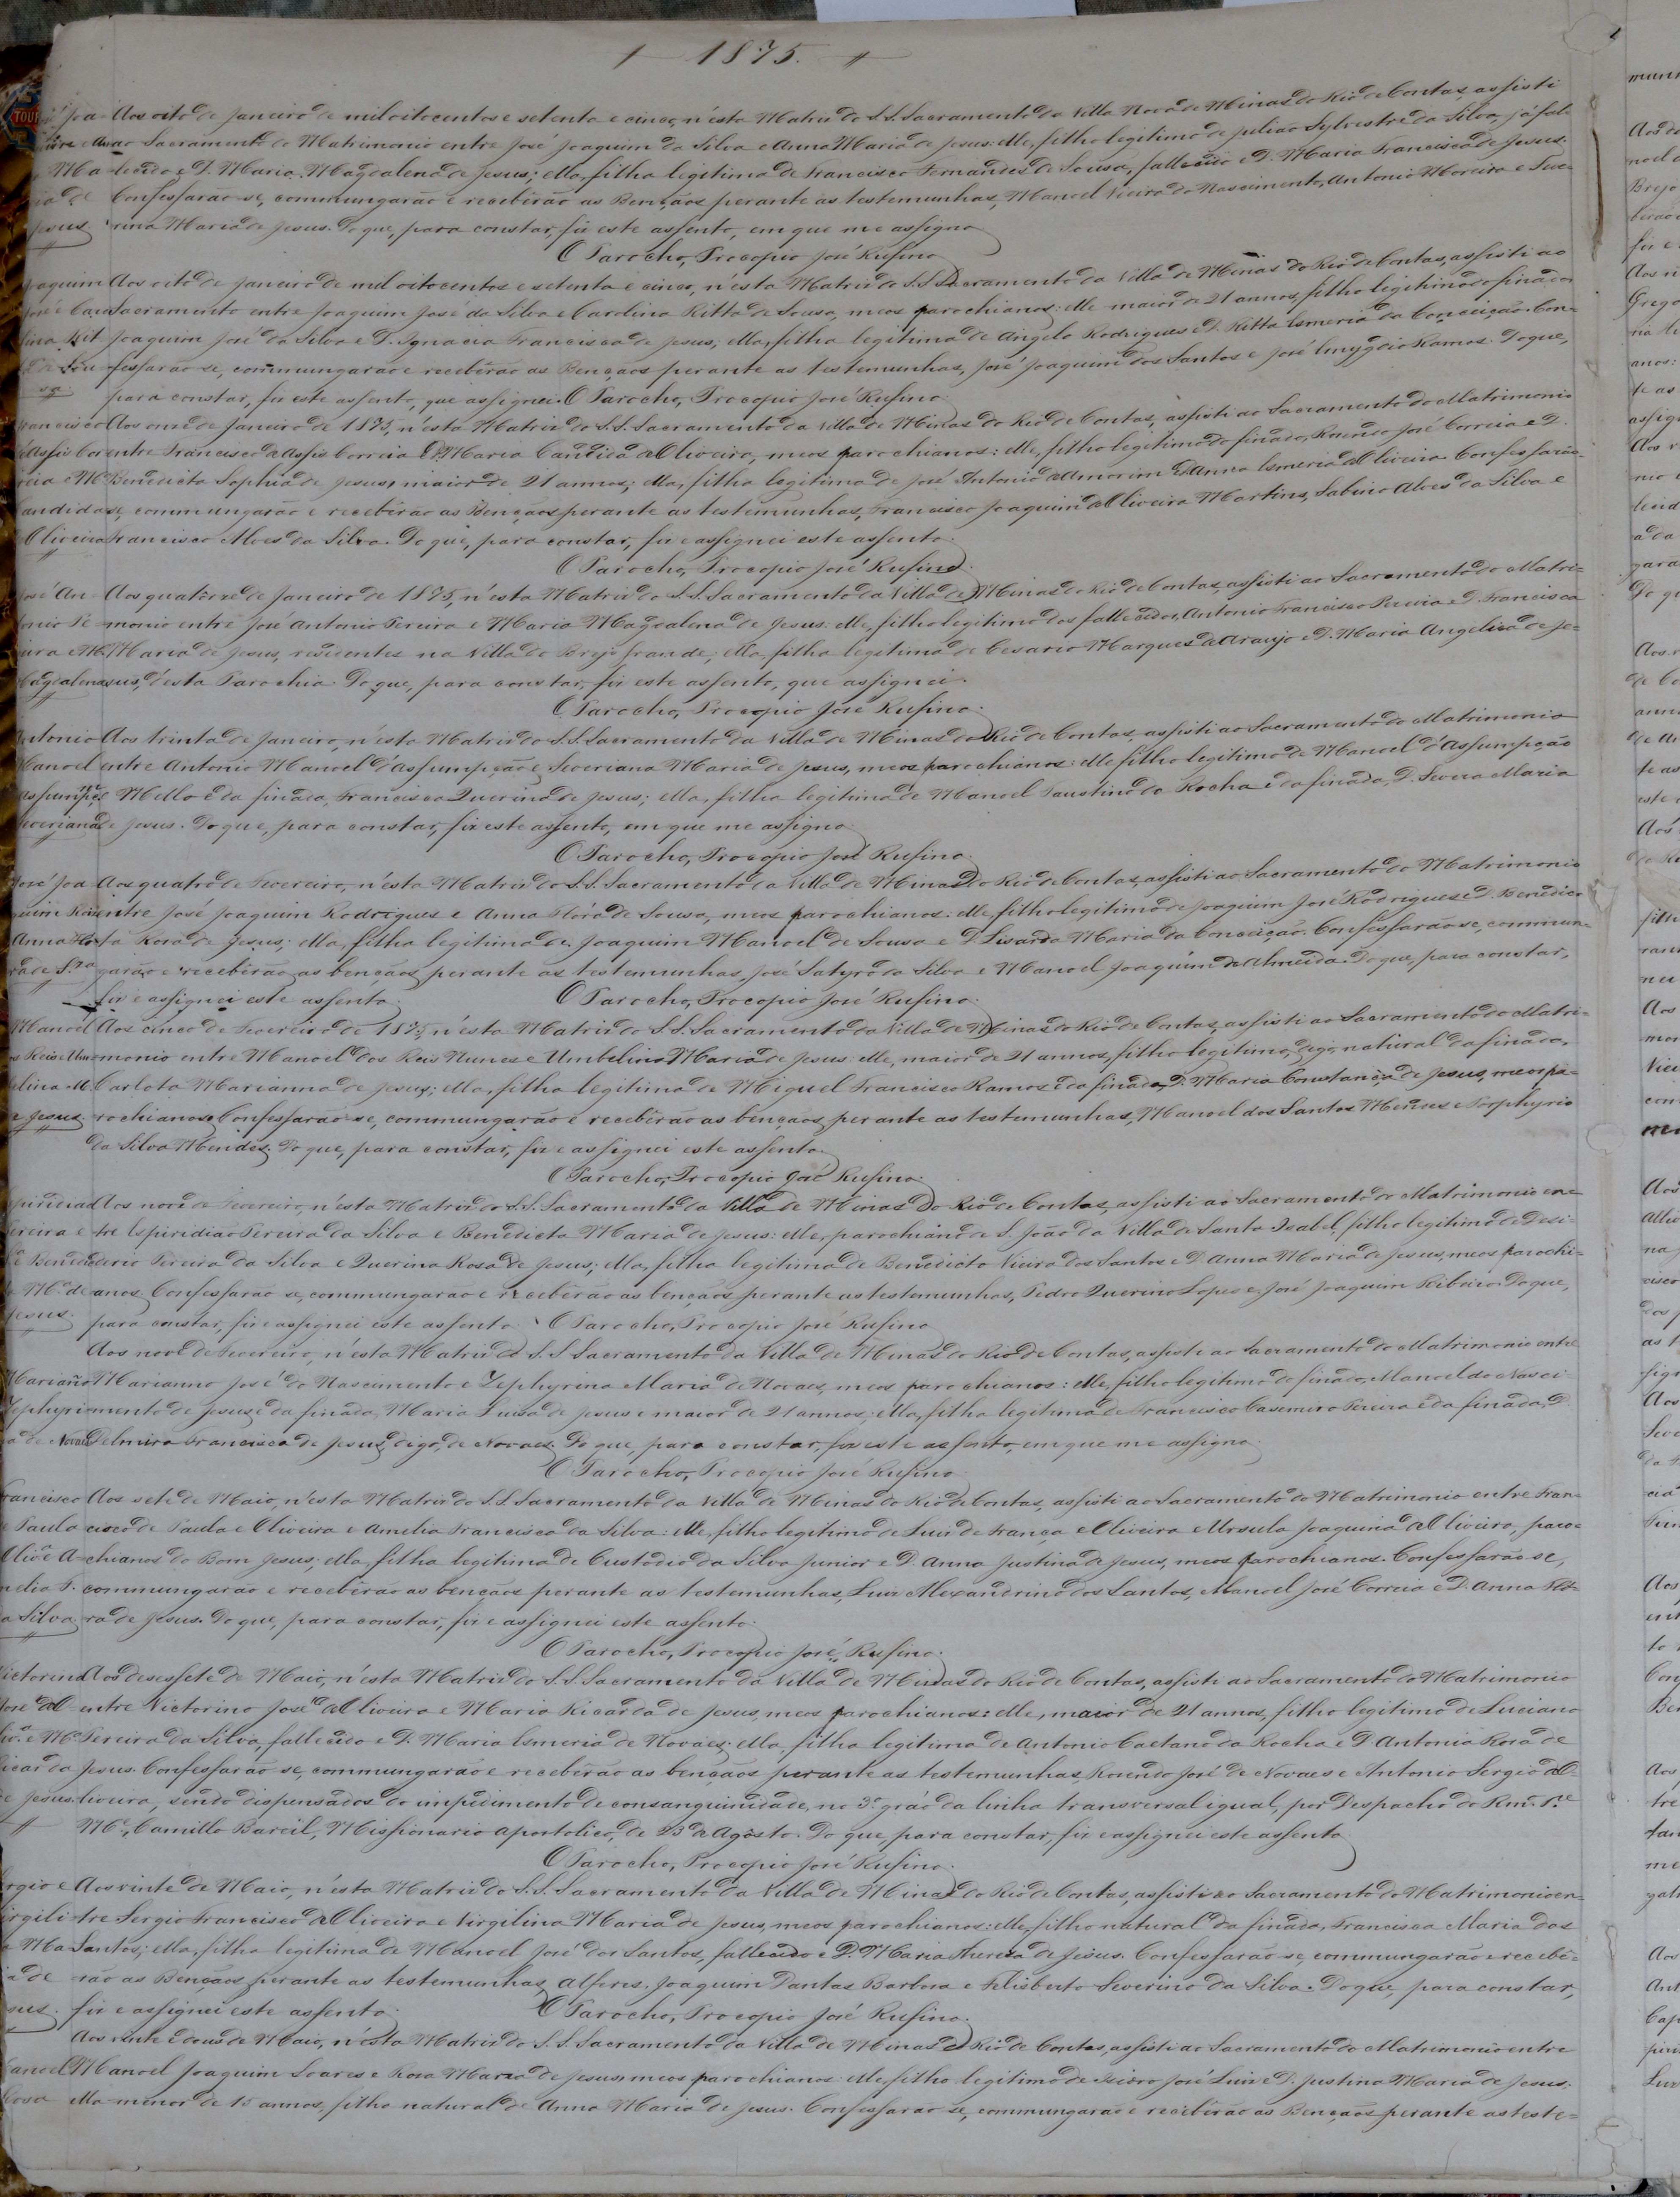 1875.
Aos oito de Janeiro de mil oitocentos e setenta e cinco, n'esta Matriz do S.S. Sacramento da Villa Nova de Minas do Rio de Contas, assisti
ao Sacramento do Matrimonio entre José Joaquim da Silva e Anna Maria de Jesus: elle, filho legitimo de Julião Sylvestre da Silva, já fal-
lecido e D. Maria Magdalena de Jesus; ella, filha legitima de Francisco Fernandes de Sousa, fallecido e D. Maria Francisca de Jesus.
Confessarão-se, commungarão e receberão as Bençãos perante as testemunhas, Manoel Vieira do Nascimento, Antonio Moreira e Seve-
rina Maria de Jesus. Do que, para constar, fiz este assento, em que me assigno
O Parocho, Procopio José Rufino
Joaquim Aos oito de Janeiro de mil oitocentos e setenta e cinco, n'esta Matriz do S.S. Sacramento da Villa de Minas do Rio de Contas, assisti ao
José e Caro Sacramento entre Joaquim José da Silva e Carolina Ritta de Sousa, meos parochianos: elle maior de 21 annos, filho legitimo do finado
lina Rit Joaquim José da Silva e D. Ignacia Francisca de Jesus; ella, filha legitima de Angelo Rodrigues e D. Ritta Esmeria da Conceição. Con-
fessarão-se, commungarão e receberão as Bençãos perante as testemunhas, José Joaquim dos Santos e José Emygdio Ramos. Do que,
para constar, fiz este assento, que assignei. O Parocho, Procopio José Rufino.
Francisco Aos onze de Janeiro de 1875, n'esta Matriz do S.S. Sacramento da Villa de Minas do Rio de Contas, assisti ao Sacramento do Matrimonio
d'Assis Cor entre Francisco de Assis Correia e D. Maria Candida d'Oliveira, meos parochianos: elle, filho legitimo do finado, Rozendo José Correia e D.
reia e Mª Benedicta Sophia de Jesus, maior de 21 annos; ella, filha legitima de José Antonio d'Amorim e D. Anna Esmeria d'Oliveira. Confessarão-
Candida se, commungarão e receberão as Bençãos perante as testemunhas, Francisco Joaquim d'Oliveira Martins, Sabino Alves da Silva e
Oliveira Francisco Alves da Silva. Do que, para constar, fiz e assignei este assento.
O Parocho, Procopio José Rufino.
José An- Aos quatorze de Janeiro de 1875, n'esta Matriz do S.S. Sacramento da Villa de Minas do Rio de Contas, assisti ao Sacramento do Matri-
tonio Pe monio entre José Antonio Pereira e Maria Magdalena de Jesus: elle, filho legitimo dos fallecidos, Antonio Francisco Pereira e D. Francisca
reira e Mª Maria de Jesus, residentes na Villa do Brejo Grande; ella, filha legitima de Cesario Marques d'Araujo e D. Maria Angelica de Je-
Magdalena sus, d'esta Parochia. Do que, para constar, fiz este assento, que assignei.
O Parocho, Procopio José Rufino.
Antonio Aos trinta de Janeiro, n'esta Matriz do S.S. Sacramento da Villa de Minas do Rio de Contas, assisti ao Sacramento do Matrimonio
Manoel entre Antonio Manoel d'Assumpção e Severiana Maria de Jesus, meos parochianos: elle filho legitimo de Manoel d'Assumpção
Assumpção Mello e da finada, Francisca Querina de Jesus; ella, filha legitima de Manoel Faustino da Rocha e da finada, D. Severa Maria
Severiana de Jesus. Do que, para constar, fiz este assento, em que me assigno.
O Parocho, Procopio José Rufino.
José Joa Aos quatro de Fevereiro, n'esta Matriz do S.S. Sacramento da Villa de Minas do Rio de Contas, assisti ao Sacramento do Matrimonio
quim entre José Joaquim Rodrigues e Anna Flora de Sousa, meos parochianos: elle, filho legitimo de Joaquim José Rodrigues e D. Benedic-
Anna Flo ta Rosa de Jesus; ella, filha legitima de Joaquim Manoel de Sousa e D. Lisarda Maria da Conceição. Confessarão-se, commun-
ra de Sza garão e receberão as bençãos perante as testemunhas, José Satyro da Silva e Manoel Joaquim de Almeida. Do que, para constar,
fiz e assignei este assento. O Parocho, Procopio José Rufino.
Manoel Aos cinco de Fevereiro de 1875, n'esta Matriz do S.S. Sacramento da Villa de Minas do Rio de Contas, assisti ao Sacramento do Matri-
dos Reis e Um monio entre Manoel dos Reis Nunes e Umbelina Maria de Jesus: elle, maior de 21 annos, filho legitimo, digo, natural da finada,
belina M. Carlota Marianna de Jesus; ella, filha legitima de Miguel Francisco Ramos e da finada, D. Maria Constancia de Jesus, meos pa-
de Jesus rochianos. Confessarão-se, commungarão e receberão as bençãos perante as testemunhas, Manoel dos Santos Menezes e Porphyrio
da Silva Mendes. Do que, para constar, fiz e assignei este assento.
O Parocho, Procopio José Rufino.
Aos nove de Fevereiro, n'esta Matriz do S.S. Sacramento da Villa de Minas do Rio de Contas, assisti ao Sacramento do Matrimonio en-
Pereira e tre Espiridião Pereira da Silva e Benedicta Maria de Jesus: elle, parochiano de S. João da Villa de Santa Isabel, filho legitimo de Desi-
derio Pereira da Silva e Querina Rosa de Jesus; ella, filha legitima de Benedicto Vieira dos Santos e D. Anna Maria de Jesus, meos parochi-
Mª de anos. Confessarão-se, commungarão e receberão as bençãos perante as testemunhas, Pedro Querino Lopes e José Joaquim Ribeiro. Do que,
Jesus para constar, fiz e assignei este assento. O Parocho, Procopio José Rufino
Aos nove de Fevereiro, n'esta Matriz do S.S. Sacramento da Villa de Minas do Rio de Contas, assisti ao Sacramento do Matrimonio entre
Mariano Marianno José do Nascimento e Zephyrina Maria de Novaes, meos parochianos: elle, filho legitimo do finado, Manoel do Nasci-
Zephyri mento de Jesus e da finada, Maria Luisa de Jesus e maior de 21 annos; ella, filha legitima de Francisco Casemiro Pereira e da finada, D.
na de Novaes Delmira Francisca de Jesus, digo, de Novaes. Do que, para constar, fiz este assento, em que me assigno.
O Parocho, Procopio José Rufino.
Francisco Aos sete de Maio, n'esta Matriz do S.S. Sacramento da Villa de Minas do Rio de Contas, assisti ao Sacramento do Matrimonio entre Fran-
de Paula cisco de Paula e Oliveira e Amelia Francisca da Silva: elle, filho legitimo de Luis de França e Oliveira e Ursula Joaquina d'Oliveira, paro-
Olivª A- chianos do Bom Jesus; ella, filha legitima de Custodio da Silva Junior e D. Anna Justina de Jesus, meos parochianos. Confessarão-se,
melia F. commungarão e receberão as bençãos perante as testemunhas, Luis Alexandrino dos Santos, Manoel José Correia e D. Anna Flo-
da Silva ra de Jesus. Do que, para constar, fiz e assignei este assento.
O Parocho, Procopio José Rufino.
Victorino Aos desessete de Maio, n'esta Matriz do S.S. Sacramento da Villa de Minas do Rio de Contas, assisti ao Sacramento do Matrimonio
José d'O- entre Victorino José d'Oliveira e Maria Ricarda de Jesus, meos parochianos: elle, maior de 21 annos, filho legitimo de Luciano
livª e Mª Pereira da Silva, fallecido e D. Maria Esmeria de Novaes; ella, filha legitima de Antonio Caetano da Rocha e D. Antonia Rosa de
Ricarda Jesus. Confessarão-se, commungarão e receberão as bençãos perante as testemunhas, Rozendo José de Novaes e Antonio Sergio d'O-
de Jesus. liveira, sendo dispensados do impedimento de consanguinidade, no 3º gráo da linha transversal igual, por Despacho do Rmº. Pe
Mº, Camillo Barcil, Missionario apostolico, de 23 de Agosto. Do que, para constar, fiz e assignei este assento
O Parocho, Procopio José Rufino.
Sergio e Aos vinte de Maio, n'esta Matriz do S.S. Sacramento da Villa de Minas do Rio de Contas, assisti ao Sacramento do Matrimonio en-
Virgili- tre Sergio Francisco d'Oliveira e Virgilina Maria de Jesus, meos parochianos: elle, filho natural da finada, Francisca Maria dos
na Ma Santos; ella, filha legitima de Manoel José dos Santos, fallecido e D. Maria Thereza de Jesus. Confessarão-se, commungarão e recebe-
ria de rão as Bençãos perante as testemunhas, Alferes, Joaquim Dantas Barbosa e Felisberto Severino da Silva. Do que, para constar,
fiz e assignei este assento. O Parocho, Procopio José Rufino.
Aos vinte e dous de Maio, n'esta Matriz do S.S. Sacramento da Villa de Minas do Rio de Contas, assisti ao Sacramento do Matrimonio entre
Manoel Manoel Joaquim Soares e Rosa Maria de Jesus, meos parochianos: elle, filho legitimo de Isidro José Luis e D. Justina Maria de Jesus;
Rosa ella menor de 15 annos, filha natural de Anna Maria de Jesus. Confessarão-se, commungarão e receberão as Bençãos perante as teste-